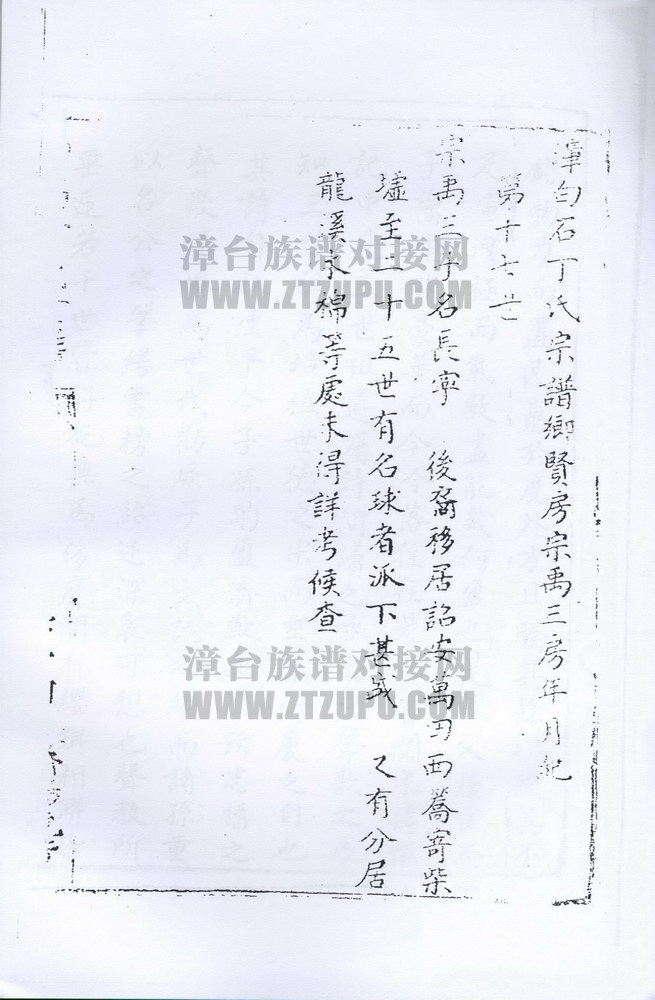 漳白石丁氏宗譜鄉賢房宗禹三房年月紀
第十七世
宗禹三子名長寧 後裔移居詔安萬田西蕎寄柴
墟至二十五世有名球者派下甚盛 又有分居
龍溪水棉等處未得詳考候查
漳台族谱对接网
WWW.ZTZUPU.COM
漳台族谱对接网
WWW.ZTZUPU.COM